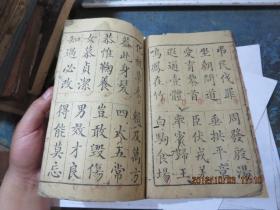 弔民伐罪 周發殷湯
坐朝問道 垂拱平章
愛育黎首 臣伏戎羌
遐邇壹體 率賓歸王
鳴鳳在竹 白駒食場
化被草木 賴及萬方
蓋此身髮 四大五常
恭惟鞠養 豈敢毀傷
女慕貞潔 男效才良
知過必改 得能莫忘